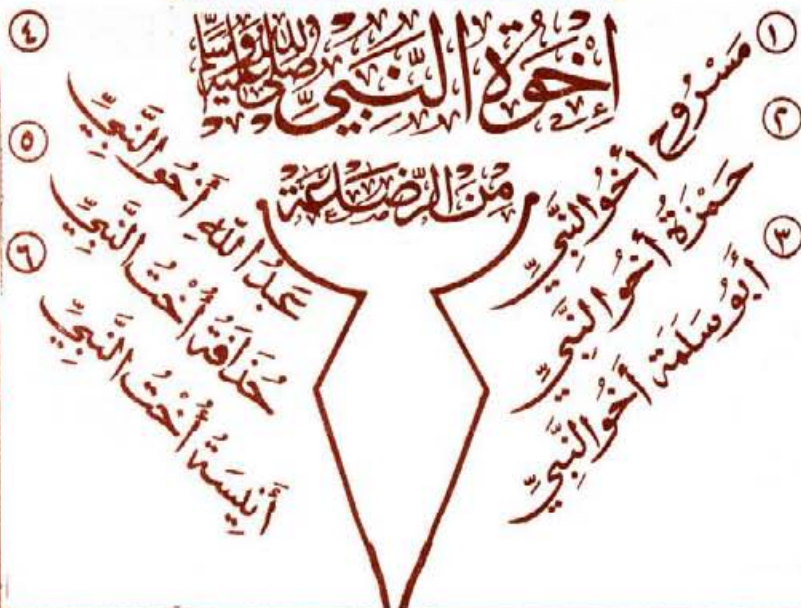 إخوة النبي صلى الله عليه وسلم
من الرضاعة
١ مَسْرُوح أخُو النَّبِيِّ
٢ حَمْزَةُ أخُو النَّبِيِّ
٣ أَبُو سَلَمَة أَخُو النَّبِيِّ
٤ عَبْدُ اللَّهِ أَخُو النَّبِيِّ
٥ حُذَافَةُ أُخْتُ النَّبِيِّ
٦ أَنِيسَةُ أُخْتُ النَّبِيِّ